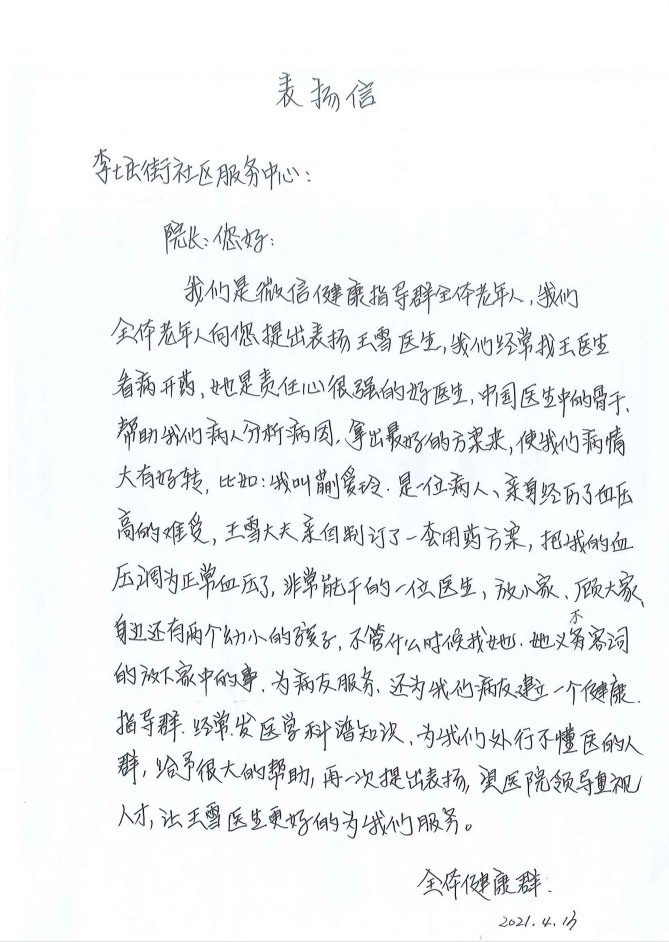 表扬信
李七庄街社区服务中心:
院长:您好:
我们是微信健康指导群全体老年人,我们
全体老年人向您提出表扬王雪医生,我们经常找王医生
看病开药,她是责任心很强的好医生,中国医生中的骨干、
帮助我们病人分析病因,拿出最好的方案来,使我们病情
大有好转,比如:我叫蒯爱玲.是一位病人、亲身经历了血压
高的难受,王雪大夫亲自制订了一套用药方案,把我的血
压调为正常血压了,非常能干的一位医生,放小家、顾大家、
身边还有两个幼小的孩子,不管什么时候找她.她义不务客词
的放下家中的事.为病友服务、还为我们病友建立一个健康.
指导群.经常发医学科谱知识,为我们外行不懂医的人
群,给予很大的帮助,再一次提出表扬,望医院领导重视
人才,让王雪医生更好的为我们服务。
全体健康群:
2021.4.13